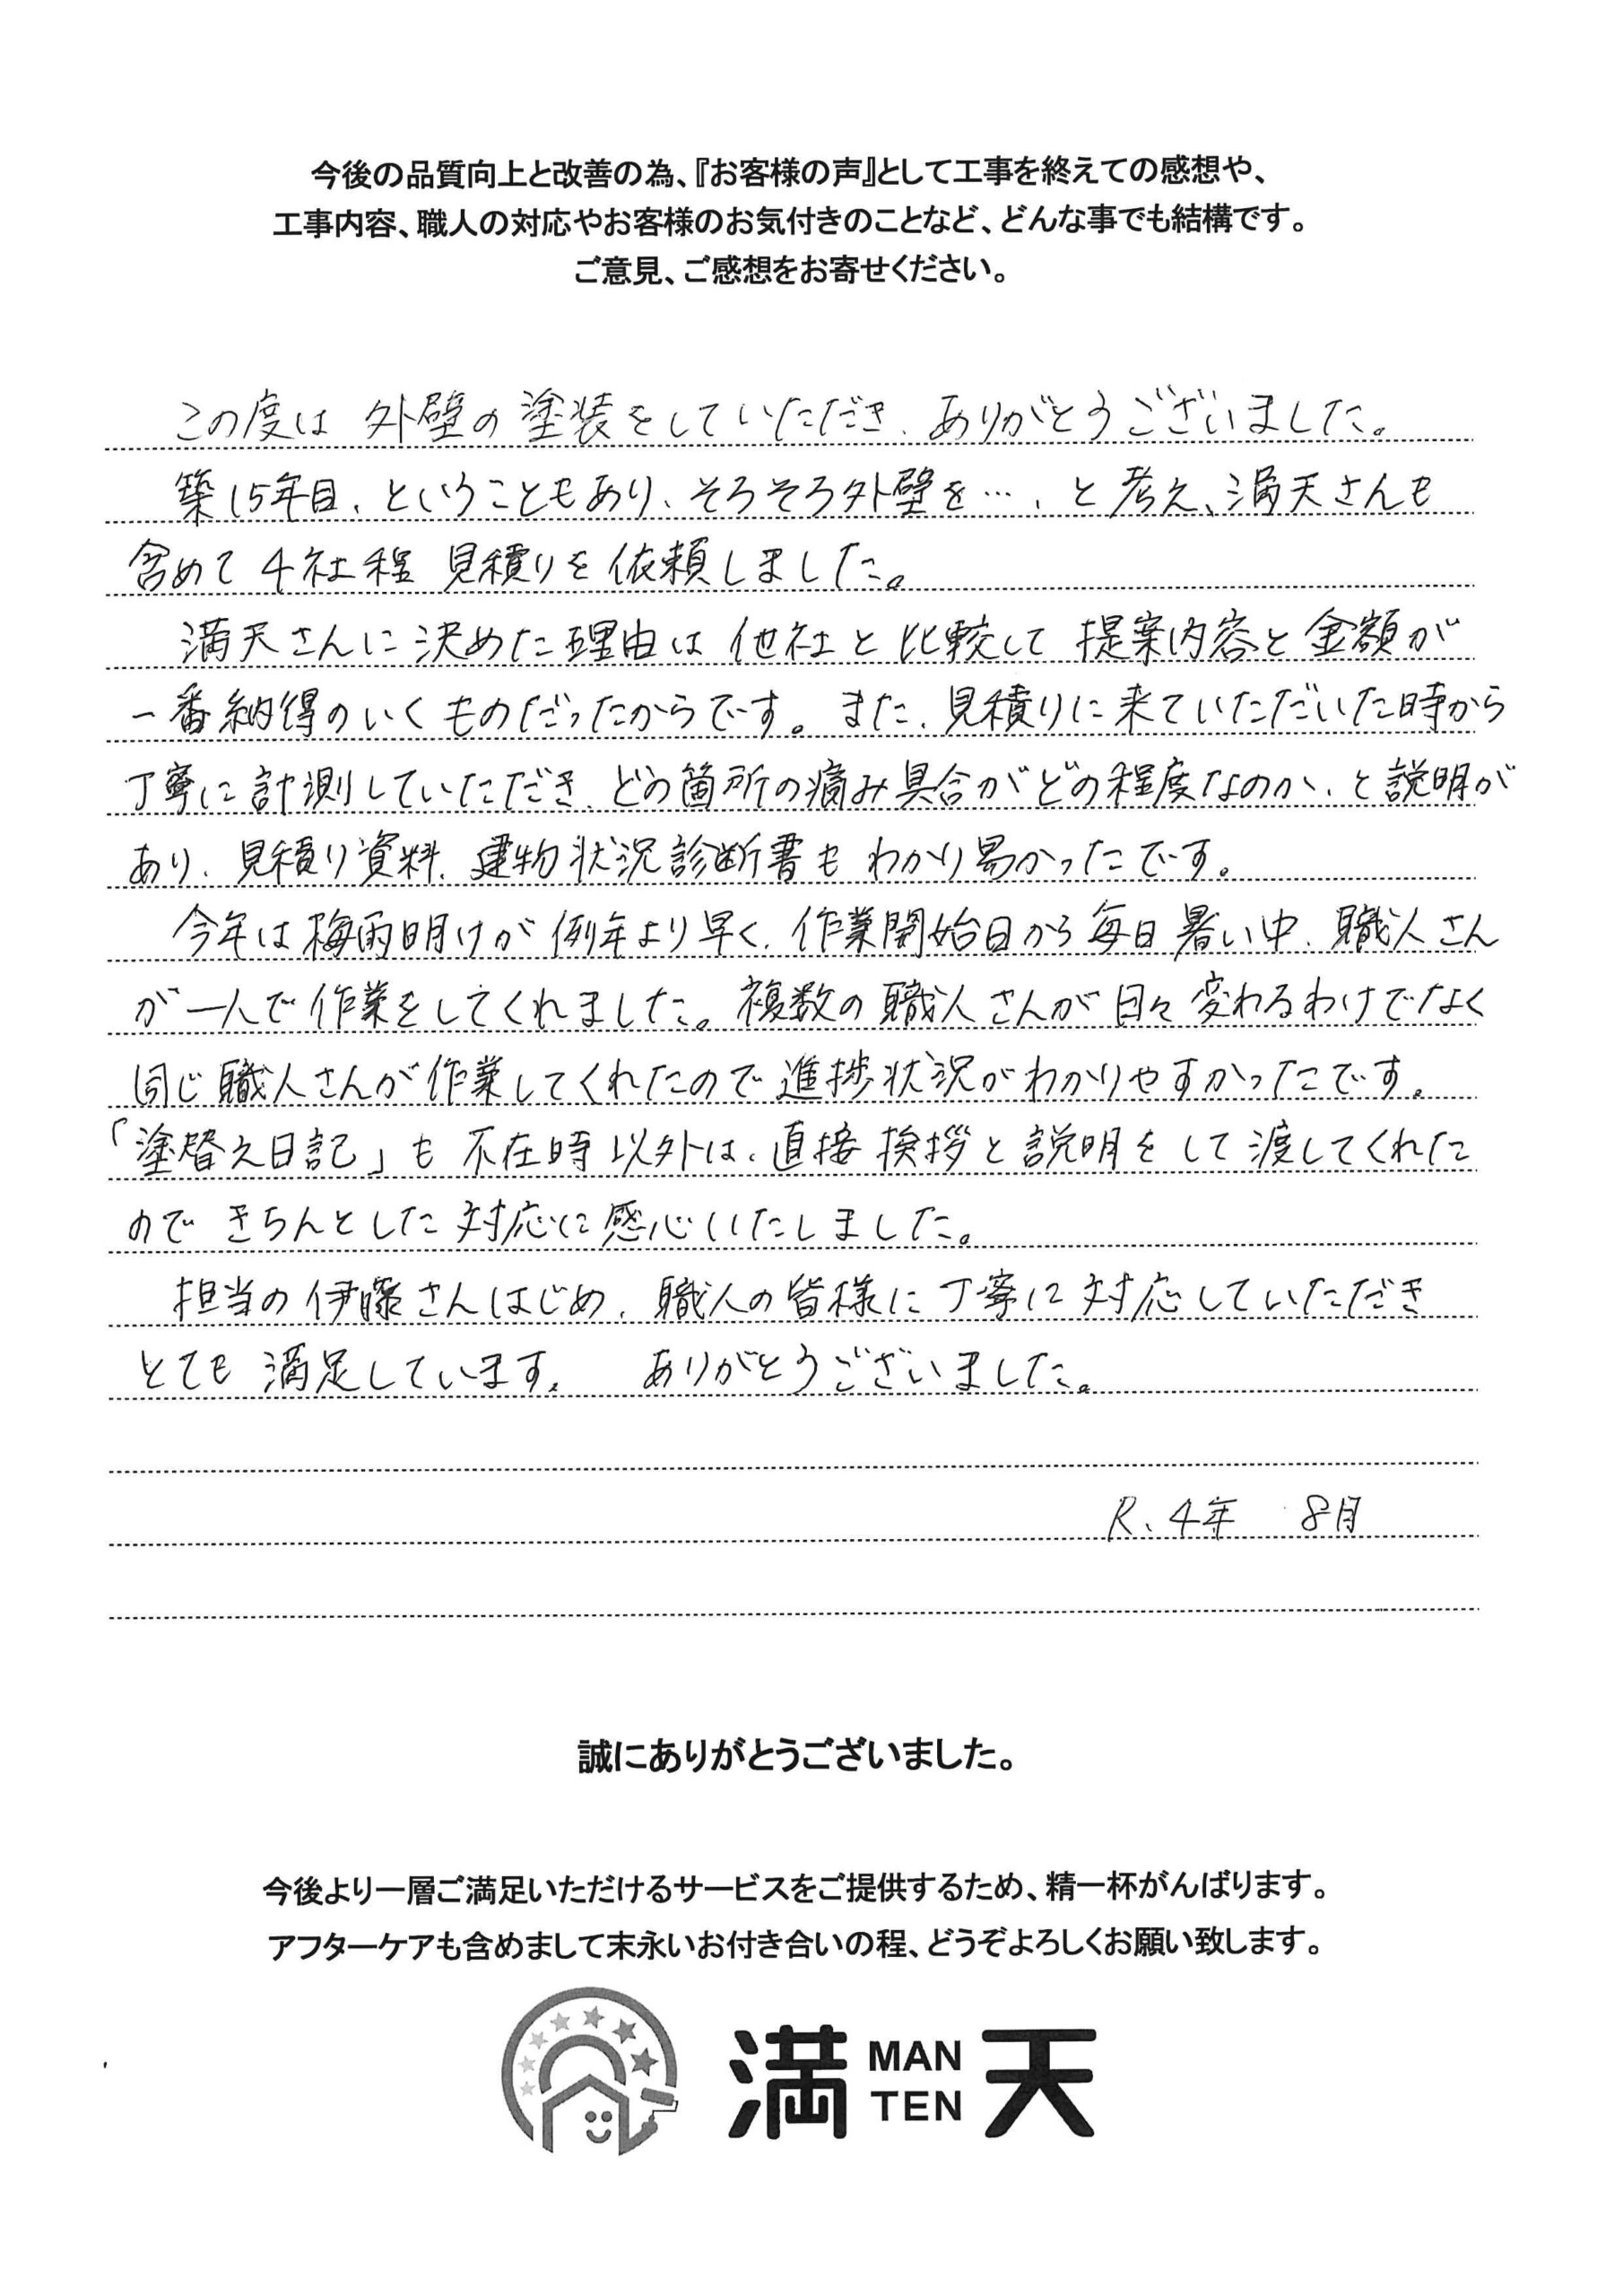 今後の品質向上と改善の為、『お客様の声』として工事を終えての感想や、
工事内容、職人の対応やお客様のお気付きのことなど、どんな事でも結構です。
ご意見、ご感想をお寄せください。
この度は 外壁の塗装をしていただき、ありがとうございました。
築15年目、ということもあり、そろそろ外壁を…、と考え、満天さんも
含めて4社程 見積りを依頼しました。
満天さんに決めた理由は 他社と比較して 提案内容と金額が
一番納得のいくものだったからです。また、見積りに来ていただいた時から
丁寧に計測していただき、どの箇所の痛み具合がどの程度なのか、と説明が
あり、見積り資料、建物状況診断書もわかり易かったです。
今年は梅雨明けが例年より早く、作業開始日から毎日暑い中、職人さん
が一人で作業をしてくれました。複数の職人さんが日々変わるわけでなく
同じ職人さんが作業してくれたので進捗状況がわかりやすかったです。
「塗替え日記」も不在時以外は、直接挨拶と説明をして渡してくれた
のできちんとした対応に感心いたしました。
担当の伊藤さんはじめ、職人の皆様に丁寧に対応していただき
とても満足しています。 ありがとうございました。
R、4年 8月
誠にありがとうございました。
今後より一層ご満足いただけるサービスをご提供するため、精一杯がんばります。
アフターケアも含めまして末永いお付き合いの程、どうぞよろしくお願い致します。
満 MAN TEN 天